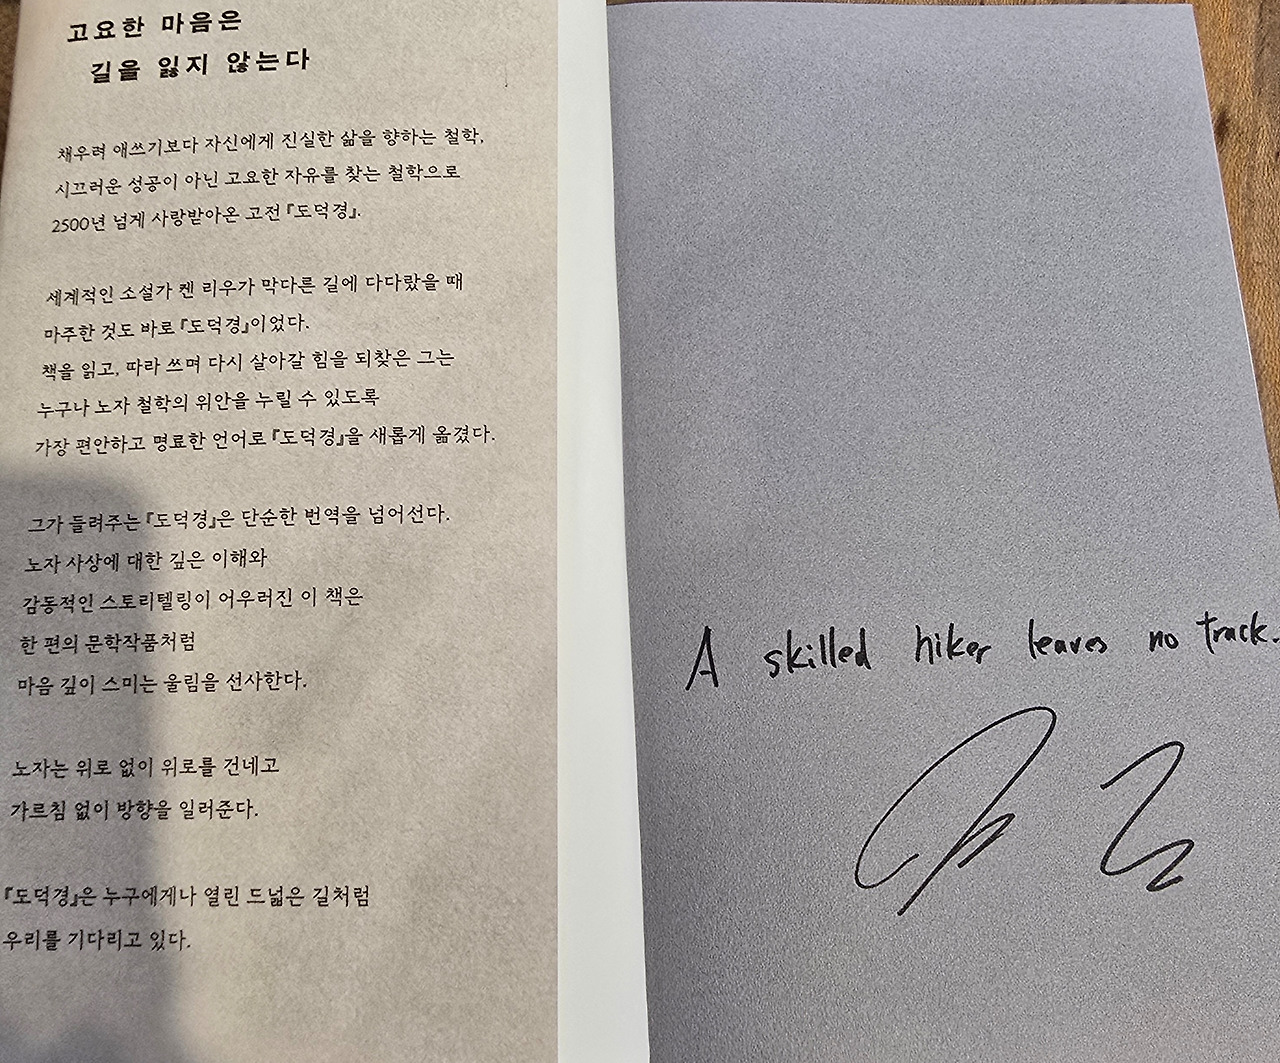 고요한 마음은
길을 잃지 않는다
채우려 애쓰기보다 자신에게 진실한 삶을 향하는 철학,
시끄러운 성공이 아닌 고요한 자유를 찾는 철학으로
2500년 넘게 사랑받아온 고전 『도덕경』.
세계적인 소설가 켄 리우가 막다른 길에 다다랐을 때
마주한 것도 바로 『도덕경』이었다.
책을 읽고, 따라 쓰며 다시 살아갈 힘을 되찾은 그는
누구나 노자 철학의 위안을 누릴 수 있도록
가장 편안하고 명료한 언어로 『도덕경』을 새롭게 옮겼다.
그가 들려주는 『도덕경』은 단순한 번역을 넘어선다.
노자 사상에 대한 깊은 이해와
감동적인 스토리텔링이 어우러진 이 책은
한 편의 문학작품처럼
마음 깊이 스미는 울림을 선사한다.
노자는 위로 없이 위로를 건네고
가르침 없이 방향을 일러준다.
『도덕경』은 누구에게나 열린 드넓은 길처럼
우리를 기다리고 있다.
A skilled hiker leaves no track.